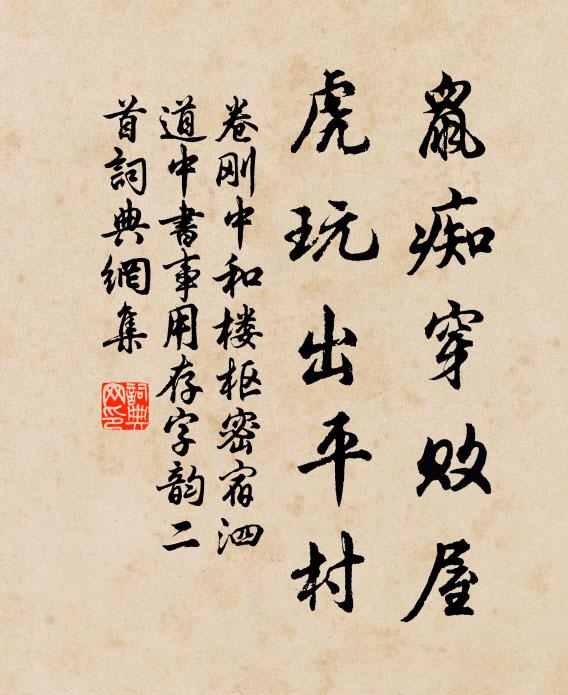 鼠痴穿败屋
虎玩出平村
卷刚中和楼枢密宿泗
道中书事用存字韵二
首词典网集
詞典网印